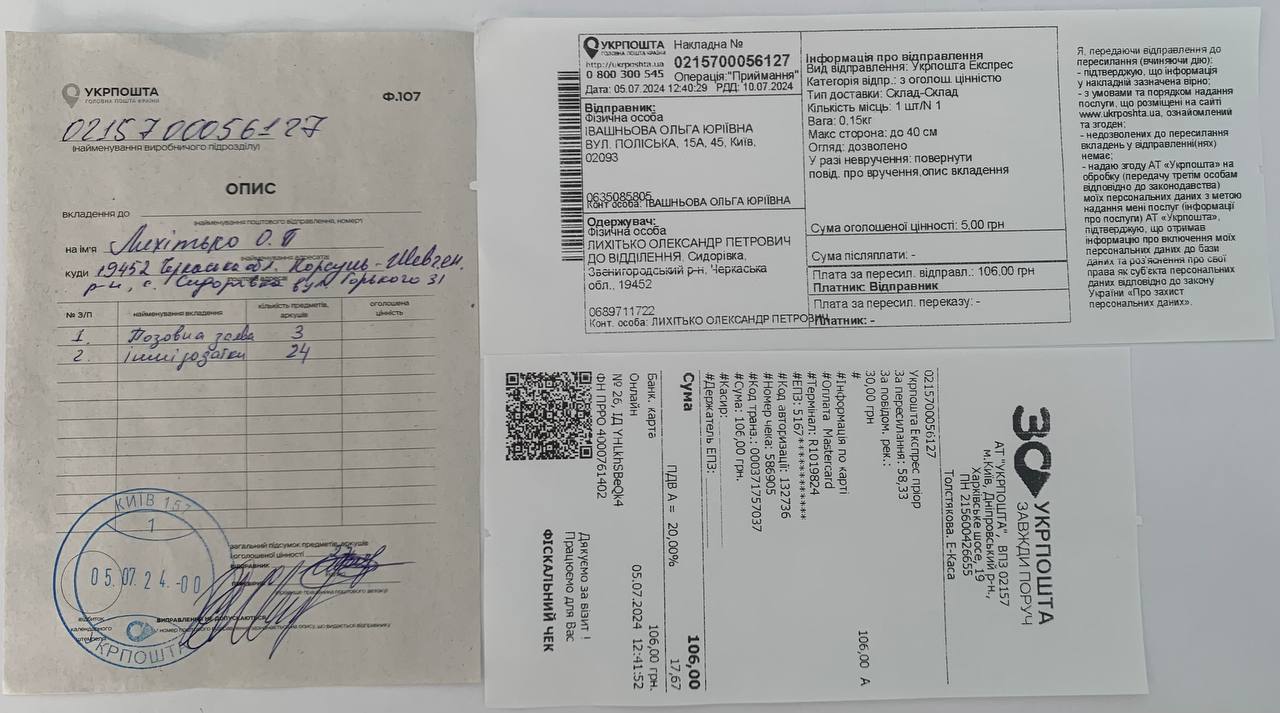 УКРПОШТА
ГОЛОВНА ПОШТА КРАЇНИ
Ф.107
0215700056127
(найменування виробничого підрозділу)
ОПИС
вкладення до
(найменування поштового відправлення, номер)
на ім'я Лихітько О.П
(найменування адресата)
куди 19452 Черкаська обл. Корсунь-Шевчен.
р-н, с. Сидорівка вул Горького 31
№ З/П
найменування вкладення
кількість предметів, аркушів
оголошена цінність
1. Позовна заява 3
2. інші додатки 24
загальний підсумок предметів, аркушів
і оголошеної цінності
відправник
ВИПРАВЛЕННЯ НЕ ДОПУСКАЮТЬСЯ
відбиток
календарного
штемпеля
КИЇВ 157
1
05.07.24.-00
УКРПОШТА
УКРПОШТА
ГОЛОВНА ПОШТА КРАЇНИ
http://ukrposhta.ua
0 800 300 545
Накладна №
0215700056127
Операція:"Приймання"
Дата: 05.07.2024 12:40:29 РДД: 10.07.2024
Відправник:
Фізична особа
ІВАШНЬОВА ОЛЬГА ЮРІЇВНА
ВУЛ. ПОЛІСЬКА, 15А, 45, Київ,
02093
0635085805
Конт особа: ІВАШНЬОВА ОЛЬГА ЮРІЇВНА
Одержувач:
Фізична особа
ЛИХІТЬКО ОЛЕКСАНДР ПЕТРОВИЧ
ДО ВІДДІЛЕННЯ, Сидорівка,
Звенигородський р-н, Черкаська
обл., 19452
0689711722
Конт. особа: ЛИХІТЬКО ОЛЕКСАНДР ПЕТРОВИЧ
Інформація про відправлення
Вид відправлення: Укрпошта Експрес
Категорія відпр.: з оголош. цінністю
Тип доставки: Склад-Склад
Кількість місць: 1 шт/N 1
Вага: 0,15кг
Макс сторона: до 40 см
Огляд: дозволено
У разі невручення: повернути
повід. про вручення,опис вкладення
Сума оголошеної цінності: 5,00 грн
Сума післяплати: -
Плата за пересил. відправл.: 106.00 грн
Платник: Відправник
Плата за пересил. переказу: -
Платник: -
Я, передаючи відправлення до
пересилання (вчиняючи дію):
- підтверджую, що інформація
у накладній зазначена вірно;
- з умовами та порядком надання
послуги, що розміщені на сайті
www.ukrposhta.ua, ознайомлений
та згоден;
- недозволених до пересилання
вкладень у відправленні(нях)
немає;
- надаю згоду АТ «Укрпошта» на
обробку (передачу третім особам
відповідно до законодавства)
моїх персональних даних з метою
надання мені послуг (інформації
про послуги) АТ «Укрпошта»,
підтверджую, що отримав
інформацію про включення моїх
персональних даних до бази
даних та роз'яснення про свої
права як суб'єкта персональних
даних відповідно до закону
України «Про захист
персональних даних».
30
УКРПОШТА
ЗАВЖДИ ПОРУЧ
АТ "УКРПОШТА", ВПЗ 02157
м.Київ, Дніпровський р-н.,
Харківське шосе, 19
ПН 215600426655
Толстякова. Е-Каса
0215700056127
Укрпошта Експрес пріор
За пересилання: 58,33
За повідом. рек.:
30,00 грн 106,00 А
#
#Інформація по карті
#Оплата Mastercard
#Термінал: R1019824
#ЕПЗ: 5167************
#Код авторизації: 132736
#Номер чека: 586905
#Код транз.: 000371757037
#Сума: 106,00 грн.
#Касир:
#Держатель ЕПЗ:
Сума 106,00
ПДВ А = 20,00% 17,67
Банк. карта 106,00 грн.
Онлайн 05.07.2024 12:41:52
№ 26, ІД YHLkhSBeQk4
ФН ПРРО 4000761402
Дякуємо за візит !
Працюємо для Вас
ФІСКАЛЬНИЙ ЧЕК